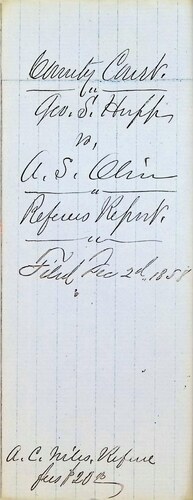 County Court.
Geo. S. Hupp
vs,
A. S. Olin
Referees Report.
Filed Dec 2d. 1858
A. C. Niles, Referee
fees $20 00